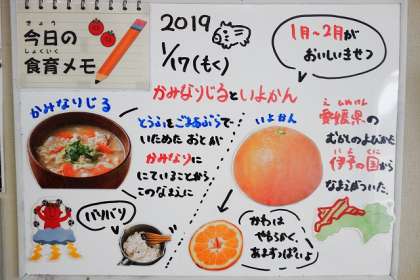 きょう
今日の
しょくいく
食育メモ
2019
1/17(もく)
1月～2月が
おいしいきせつ
かみなりじるといよかん
かみなりじる
とうふをごまあぶらで
いためた おとが
かみなりに
にていることから
このなまえに
バリバリ
いよかん
えひめけん
愛媛県の
むかしのよびかた
いよ くに
伊予の国から
なまえがついた。
かわは
やわらかく、
あまずっぱいよ